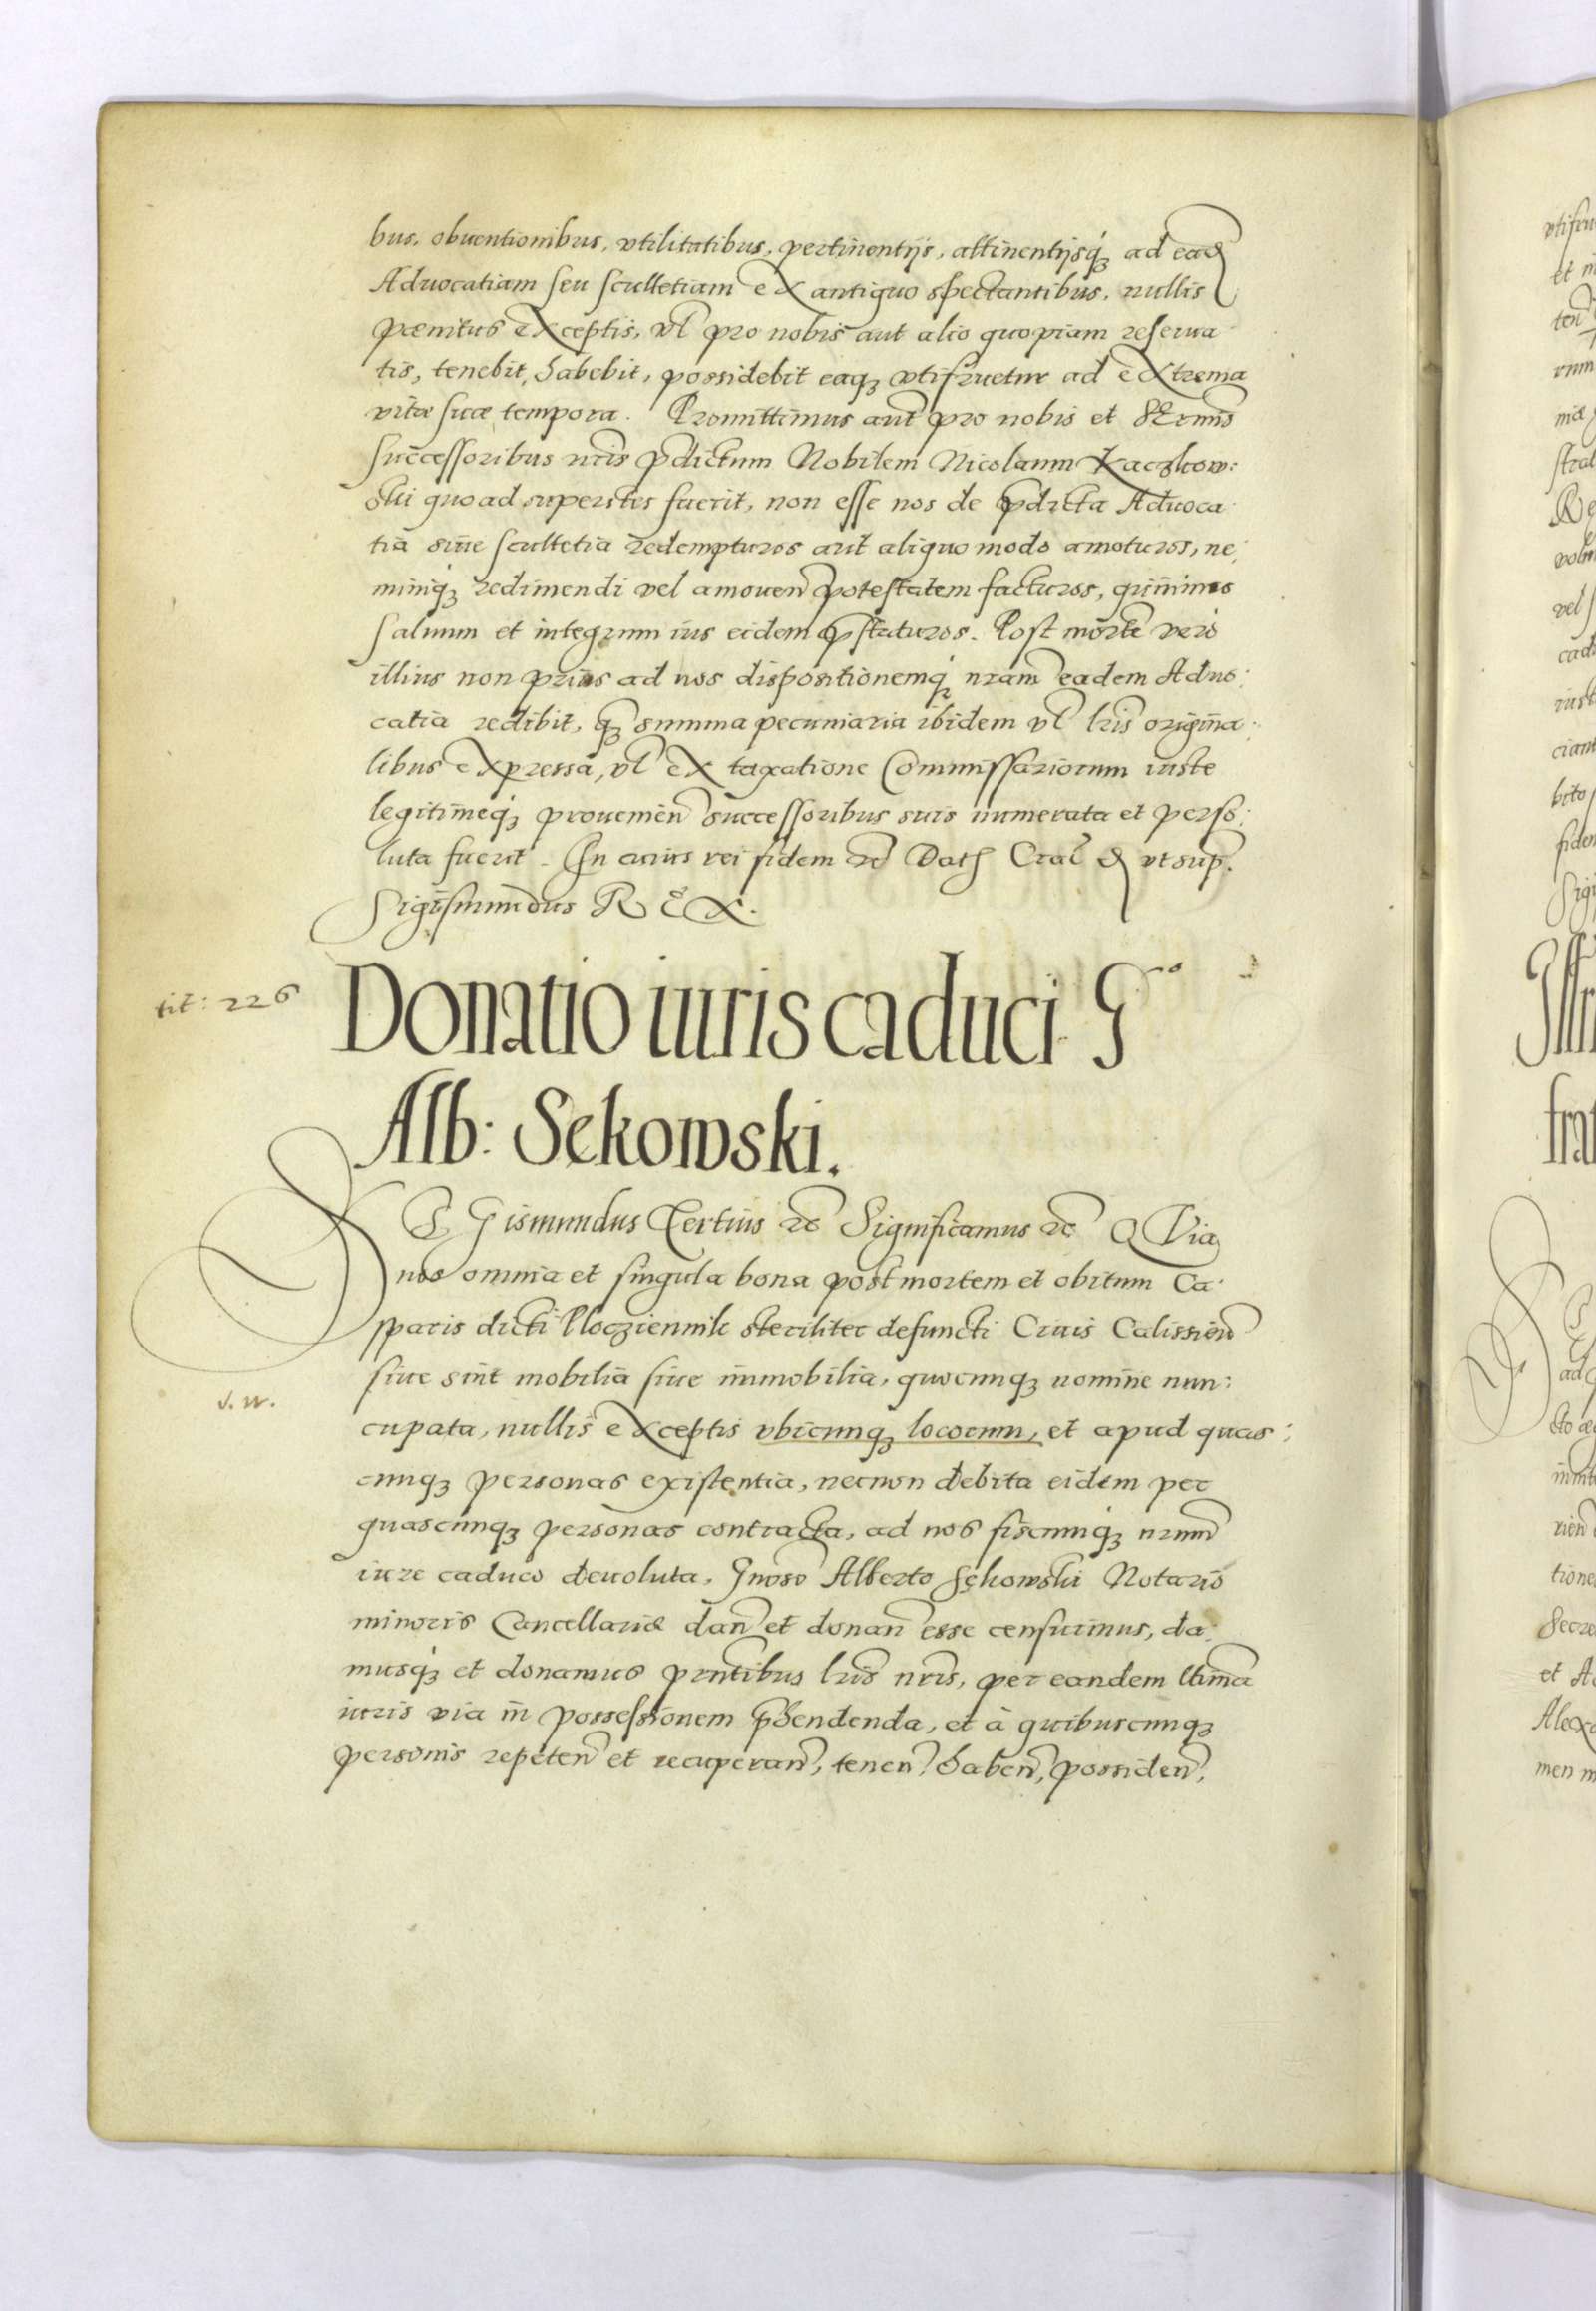 bus, obuentionibus, vtilitatibus, pertinentijs, attinentijsq; ad ead
Aduocatiam seu scultetiam ex antiquo spectantibus, nullis
pænitus exceptis, vl pro nobis aut alio quopiam reserua
tis, tenebit, habebit, possidebit eaq; vtifruetur ad extrema
vitæ suæ tempora. Promittimus aut pro nobis et SErmis
Successoribus nris pdictum Nobilem Nicolaum Kaczkow:
ski quoad superstes fuerit, non esse nos de pdicta Aduoca
tia siue scultetia redempturos aut aliquo modo amoturos, ne
miniq; redimendi vel amouen potestatem facturos, quinimo
saluum et integrum ius eidem pstaturos. Post morte vero
illius non prius ad nos dispositionemq; nram eadem Aduo:
catia redibit, q; summa pecuniaria ibidem vl lris origina:
libus expressa, vl ex taxatione Commissariorum iuste
legitimeq; prouenien successoribus suis numerata et perso:
luta fuerit. In cuius rei fidem etc Dat Crac vt sup.
Sigismundus REX.
tit: 226
Donatio iuris caduci G
Alb: Sękowski.
SIGismundus Tertius etc Significamus etc QVia
nos omnia et singula bona post mortem et obitum Ca
sparis dicti Plocziennik steriliter defuncti Ciuis Calissien
siue sint mobilia siue immobilia, quocunq; nomine nun:
J. W.
cupata, nullis exceptis vbicunq; locorum, et apud quas:
cunq; personas existentia, necnon debita eidem per
quascunq; personas contracta, ad nos fiscumq; nrum
iure caduco deuoluta, Gnoso Alberto Sękowski Notario
minoris Cancellariæ dan et donan esse censuimus, da
musq; et donamus pntibus lris nris, per eandem ltima
iuris via in possessionem phendenda, et à quibuscunq;
personis repeten et recuperan, tenen, haben, possiden,